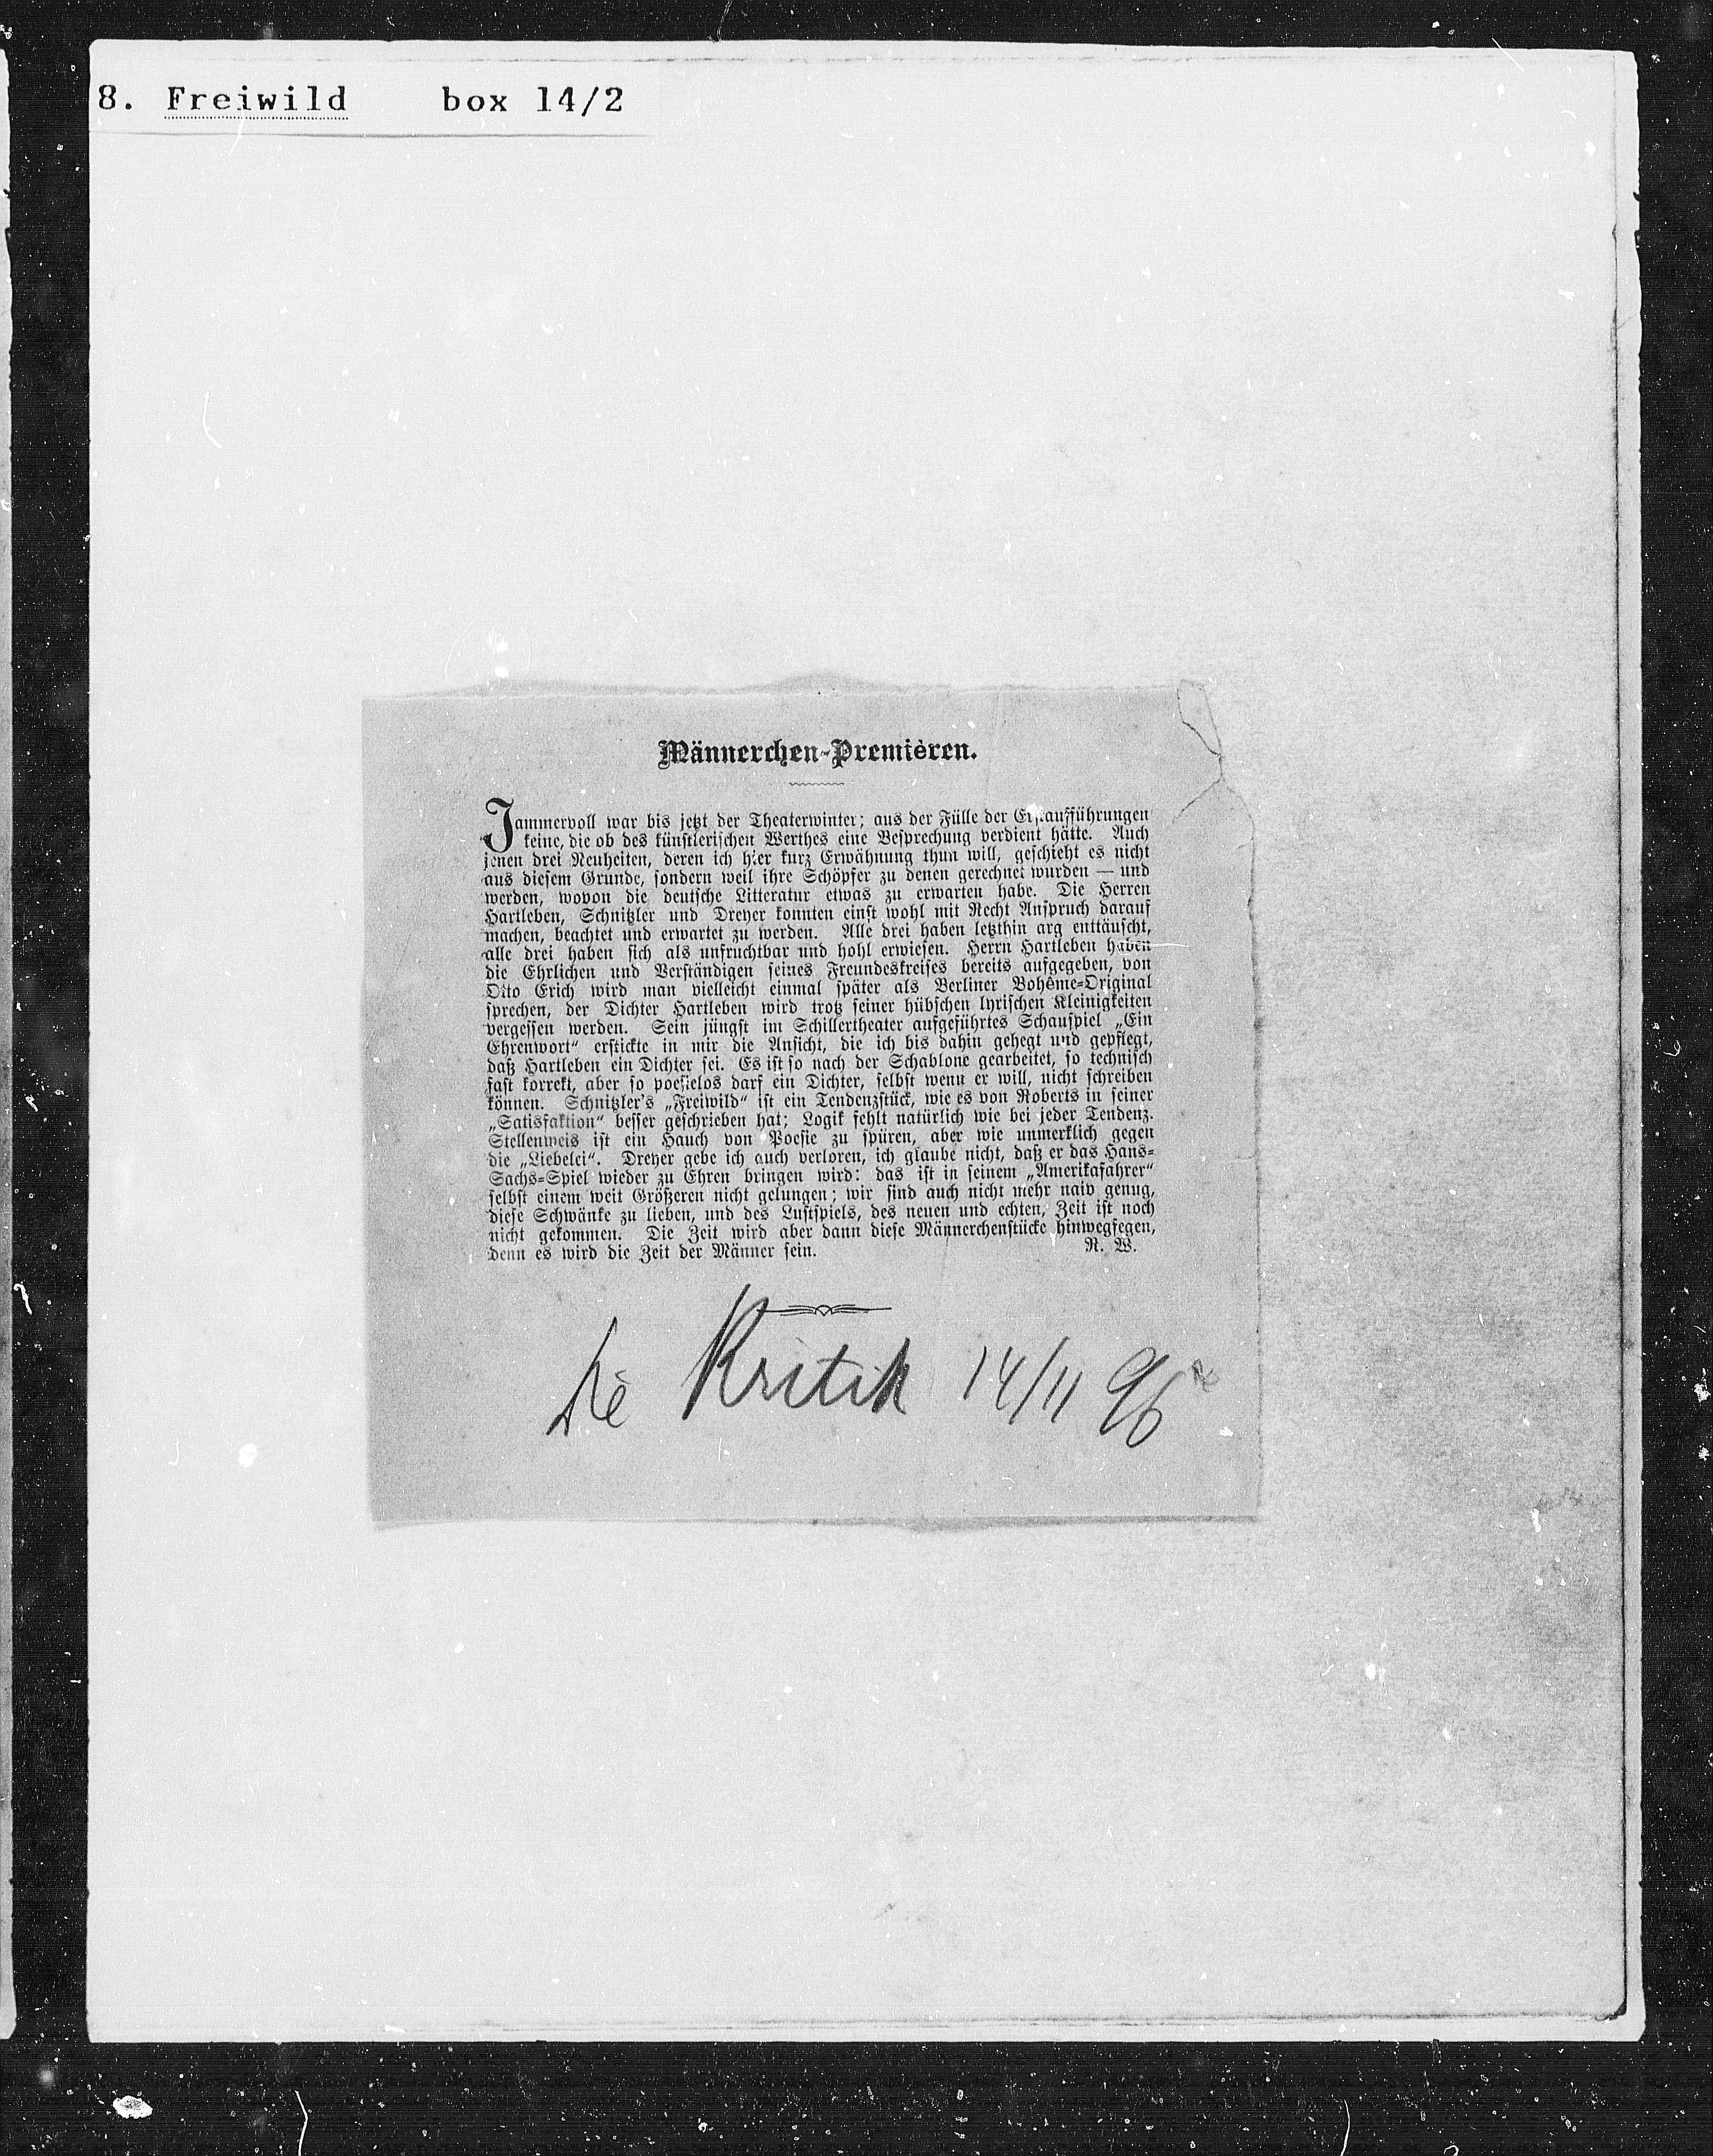 8. Freiwild box 14/2
Männerchen-Premièren.
Jammervoll war bis jetzt der Theaterwinter; aus der Fülle der Erstaufführungen
keine, die ob des künstlerischen Werthes eine Besprechung verdient hätte. Auch
jenen drei Neuheiten, deren ich hier kurz Erwähnung thun will, geschieht es nicht
aus diesem Grunde, sondern weil ihre Schöpfer zu denen gerechnet wurden — und
werden, wovon die deutsche Litteratur etwas zu erwarten habe. Die Herren
Hartleben, Schnitzler und Dreyer konnten einst wohl mit Recht Anspruch darauf
machen, beachtet und erwartet zu werden. Alle drei haben letzthin arg enttäuscht,
alle drei haben sich als unfruchtbar und hohl erwiesen. Herrn Hartleben haben
die Ehrlichen und Verständigen seines Freundeskreises bereits aufgegeben, von
Otto Erich wird man vielleicht einmal später als Berliner Bohême-Original
sprechen, der Dichter Hartleben wird trotz seiner hübschen lyrischen Kleinigkeiten
vergessen werden. Sein jüngst im Schillertheater aufgeführtes Schauspiel „Ein
Ehrenwort“ erstickte in mir die Ansicht, die ich bis dahin gehegt und gepflegt,
daß Hartleben ein Dichter sei. Es ist so nach der Schablone gearbeitet, so technisch
fast korrekt, aber so poesielos darf ein Dichter, selbst wenn er will, nicht schreiben
können. Schnitzler's „Freiwild“ ist ein Tendenzstück, wie es von Roberts in seiner
„Satisfaktion“ besser geschrieben hat; Logik fehlt natürlich wie bei jeder Tendenz.
Stellenweis ist ein Hauch von Poesie zu spüren, aber wie unmerklich gegen
die „Liebelei“. Dreyer gebe ich auch verloren, ich glaube nicht, daß er das Hans-
Sachs-Spiel wieder zu Ehren bringen wird: das ist in seinem „Amerikafahrer“
selbst einem weit Größeren nicht gelungen; wir sind auch nicht mehr naiv genug,
diese Schwänke zu lieben, und des Lustspiels, des neuen und echten, Zeit ist noch
nicht gekommen. Die Zeit wird aber dann diese Männerchenstücke hinwegfegen,
denn es wird die Zeit der Männer sein. R. W.
Die Kritik 14/11 96